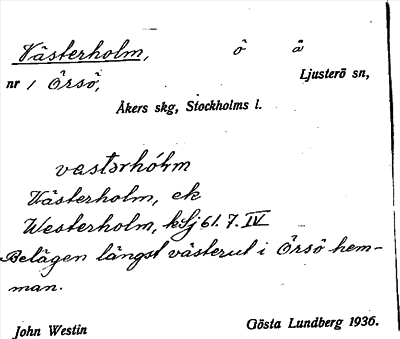 Västerholm, ö ä
nr 1 Örsö, Ljusterö sn,
Åkers skg, Stockholms l.
västərhòlm
Västerholm, ek
Westerholm, kSj 61. 7. IV
Belägen längst västerut i Örsö hem-
man.
John Westin Gösta Lundberg 1936.